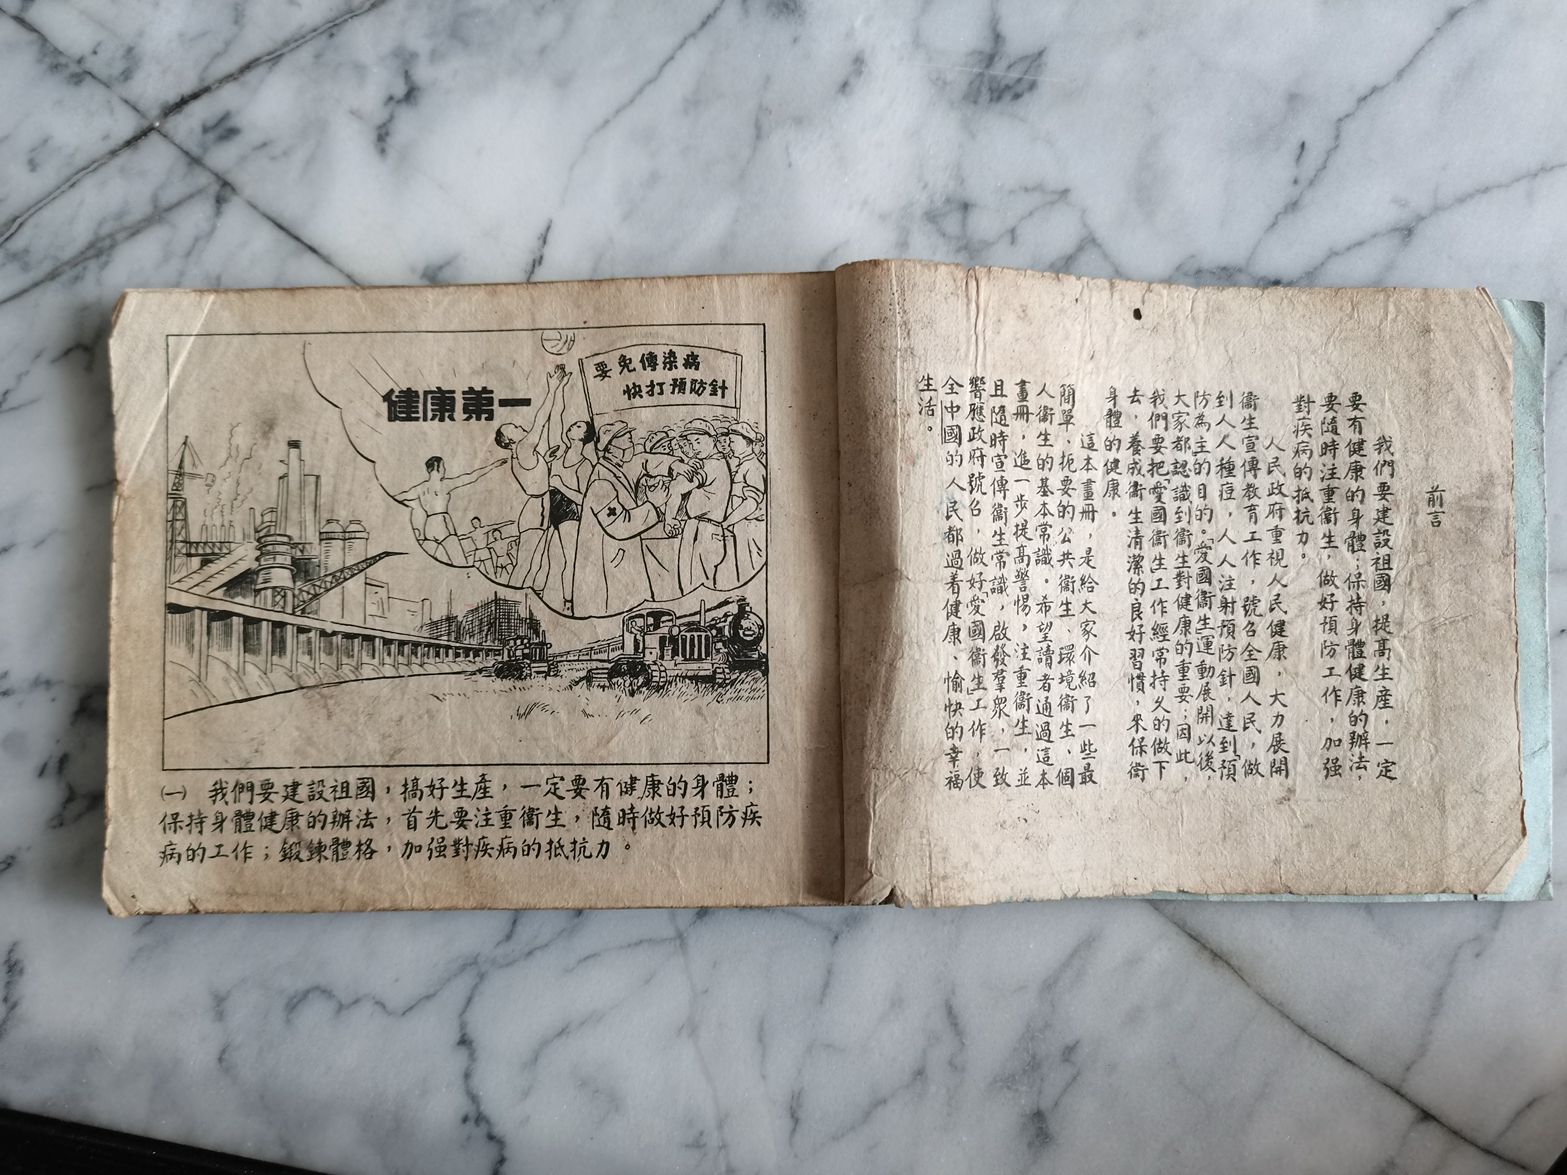 前言
我們要建設祖國，提高生產，一定
要有健康的身體；保持身體健康的辦法，
要隨時注重衞生，做好預防工作，加强
對疾病的抵抗力。
人民政府重視人民健康，大力展開
衞生宣傳教育工作，號召全國人民，做
到人人種痘，人人注射預防針，達到「預
防為主」的目的。「愛國衞生」運動展開以後，
大家都認識到衞生對健康的重要；因此，
我們要把「愛國衞生」工作經常持久的做下
去，養成衞生清潔的良好習慣，來保衞
身體的健康。
這本畫冊，是給大家介紹了一些最
簡單、扼要的公共衞生、環境衞生、個
人衞生的基本常識。希望讀者通過這本
畫冊，進一步提高警惕，注重衞生，並
且隨時宣傳衞生常識，啟發羣眾，一致
響應政府號召，做好「愛國衞生」工作，使
全中國的人民都過着健康、愉快的幸福
生活。
健康第一
要免傳染病
快打預防針
㈠ 我們要建設祖國，搞好生產，一定要有健康的身體；
保持身體健康的辦法，首先要注重衞生，隨時做好預防疾
病的工作；鍛鍊體格，加强對疾病的抵抗力。